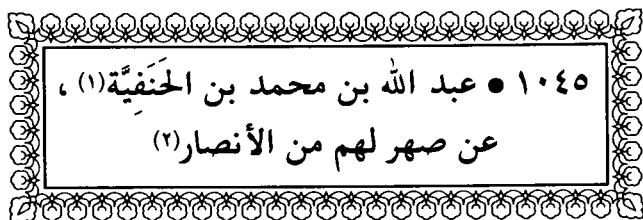 ١٠٤٥ • عبد الله بن محمد بن الحَنَفِيَّة(١) ،
عن صهر لهم من الأنصار(٢)